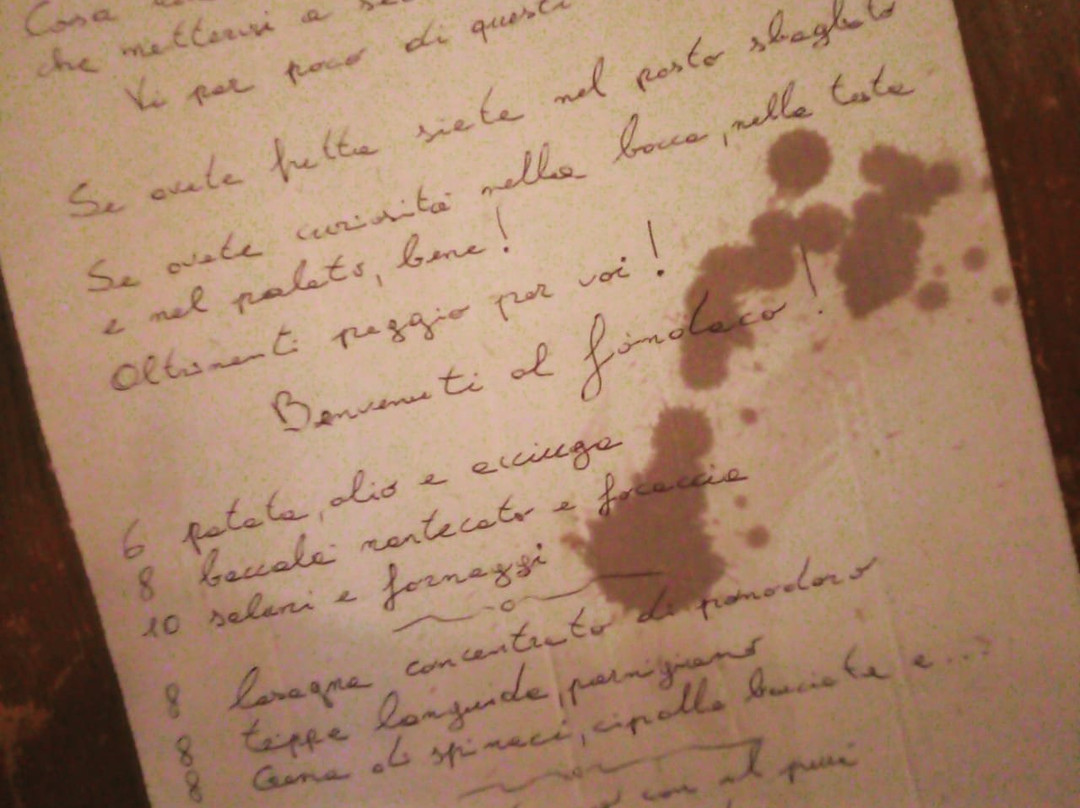 Cosa
che mettervi a
Vi per poco di questi
Se avete fretta siete nel posto sbagliato
Se avete curiosità nella bocca, nella testa
e nel palato, bene!
Oltrimenti peggio per voi!
Benvenuti al fondaco!
6 patata, olio e acciuga
8 baccalà mantecato e focaccia
10 salami e formaggi
8 lasagna concentrato di pomodoro
8 trippa languida, parmigiano
8 Crema di spinaci, cipolla bruciata e...
con al